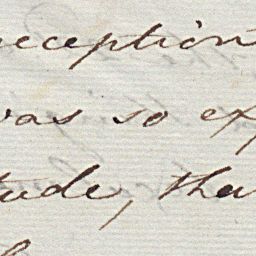 reception
was so ex
tude, tha